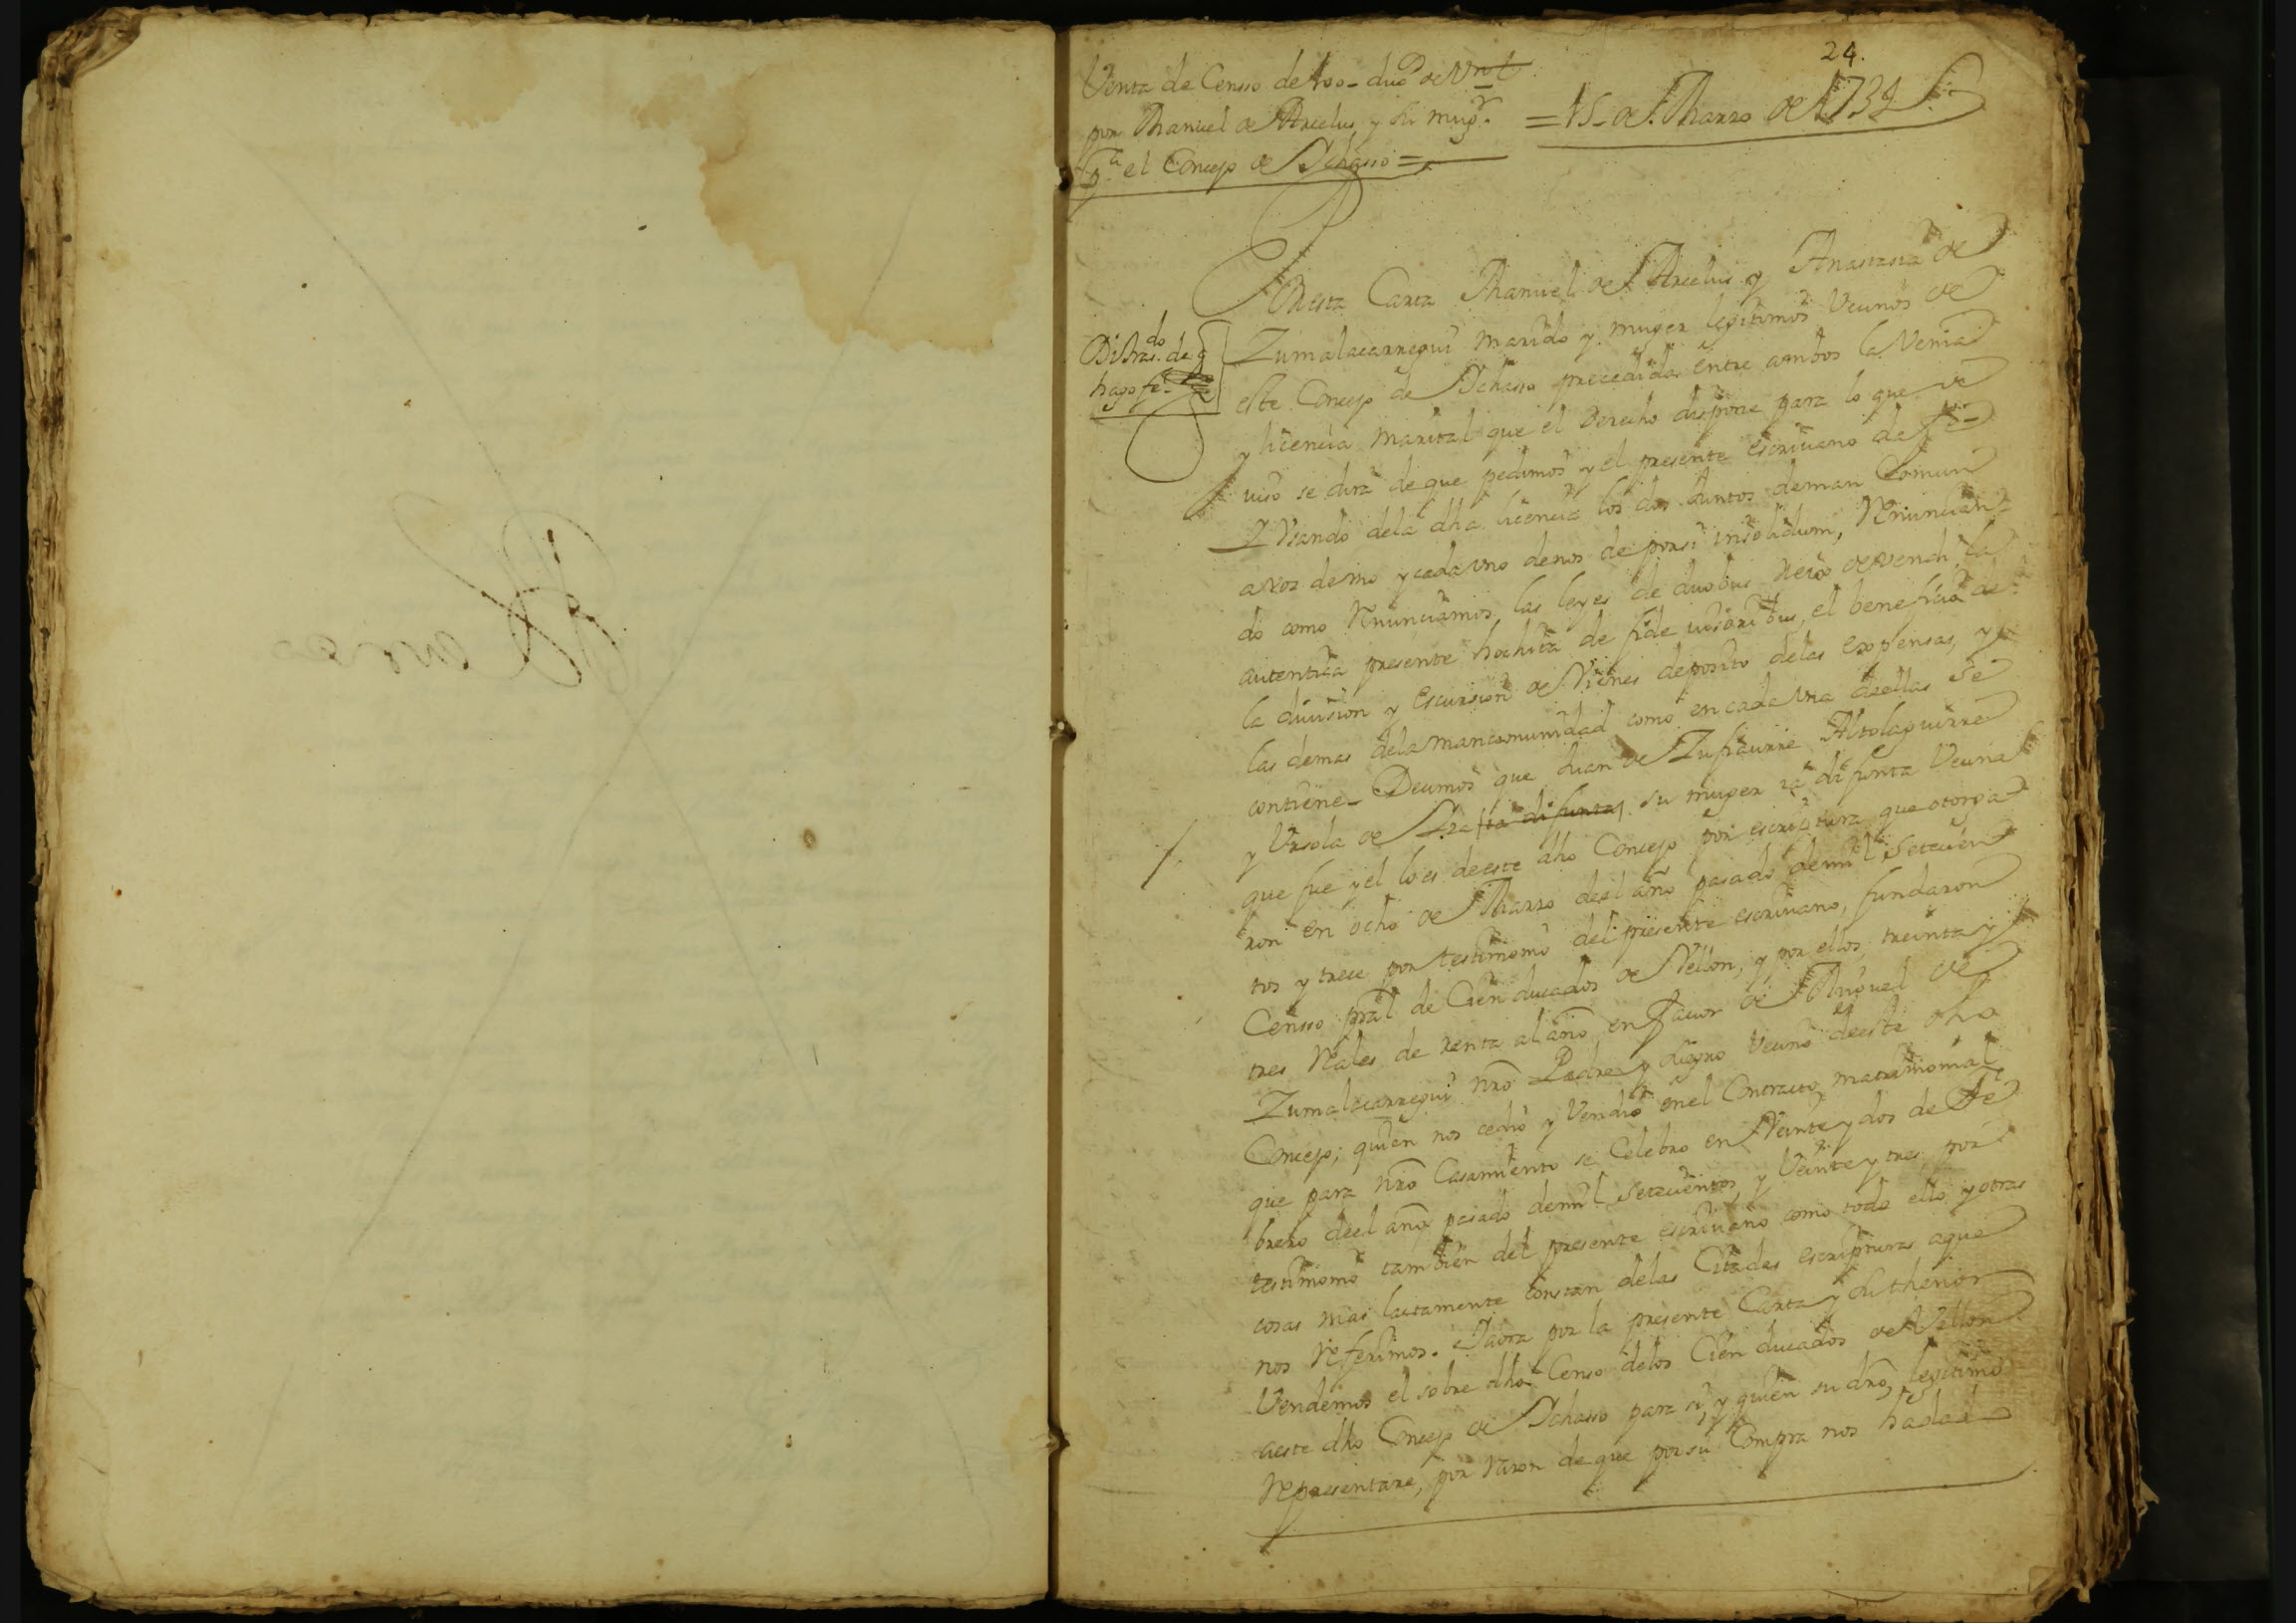 24.
Venta de Censso de 100- duc.s de Vn.l
por Manuel de Arcelus y su mug.r
p.a el Concejo de Ichasso =
= 15- de Marzo de 1734
Por esta Carta Manuel de Arcelus y Anastasia de
Zumalacarregui marido y muger legitimos Vecinos de
este Concejo de Ichasso precedida entre ambos la Venia
y licencia marital que el Derecho dispone para lo que de
uso se dira de que pedimos y el presente escriuano da fee-
Di tras.do de q
hago fe-
Y Vsando dela dha licencia los dos Juntos deman Comun
a voz de vno y cada vno denos de porsi insolidum, Renuncian-
do como Renunciamos las leyes de duobus Reis devendi, la
autentica presente hochita de fide iusoribus, el beneficio de
la diuision y Escursion de Vienes deposito delas expensas, y
las demas dela mancomunidad como en cada vna deellas se
contiene_ Decimos que Juan de Zufiaurre Altolaguirre
y Vrsola de ya difunta su muger ya difunta Vecina
que fue y el lo es deeste dho Concejo por escriptura que otorga
ron en ocho de Marzo deel año pasado demil Setecien
tos y trece por testimonio del presente escriuano, fundaron
Censso pral de Cien ducados de Vellon, y por ellos, treinta y
tres Reales de renta al año, en fauor de Miguel de
Zumalacarregui nro Padre y suegro Vecino deeste dho
Concejo; quien nos cedio y Vendio enel Contracto matrimonial
que para nro Casamiento se Celebro en Veinte y dos de Fe
brero deel año pasado demil Setecientos y Veinte y tres por
testimonio tambien del presente escriuano como todo ello y otras
cosas mas lactamente constan delas Citadas escripturas aque
nos Referimos. Y aora por la presente Carta y su thenor
Vendemos el sobre dho Censo delos Cien ducados de Vellon
aeste dho Concejo de Ichasso para si, y quien su dro legitimo
Representare, por razon de que por su Compra nos ha dado